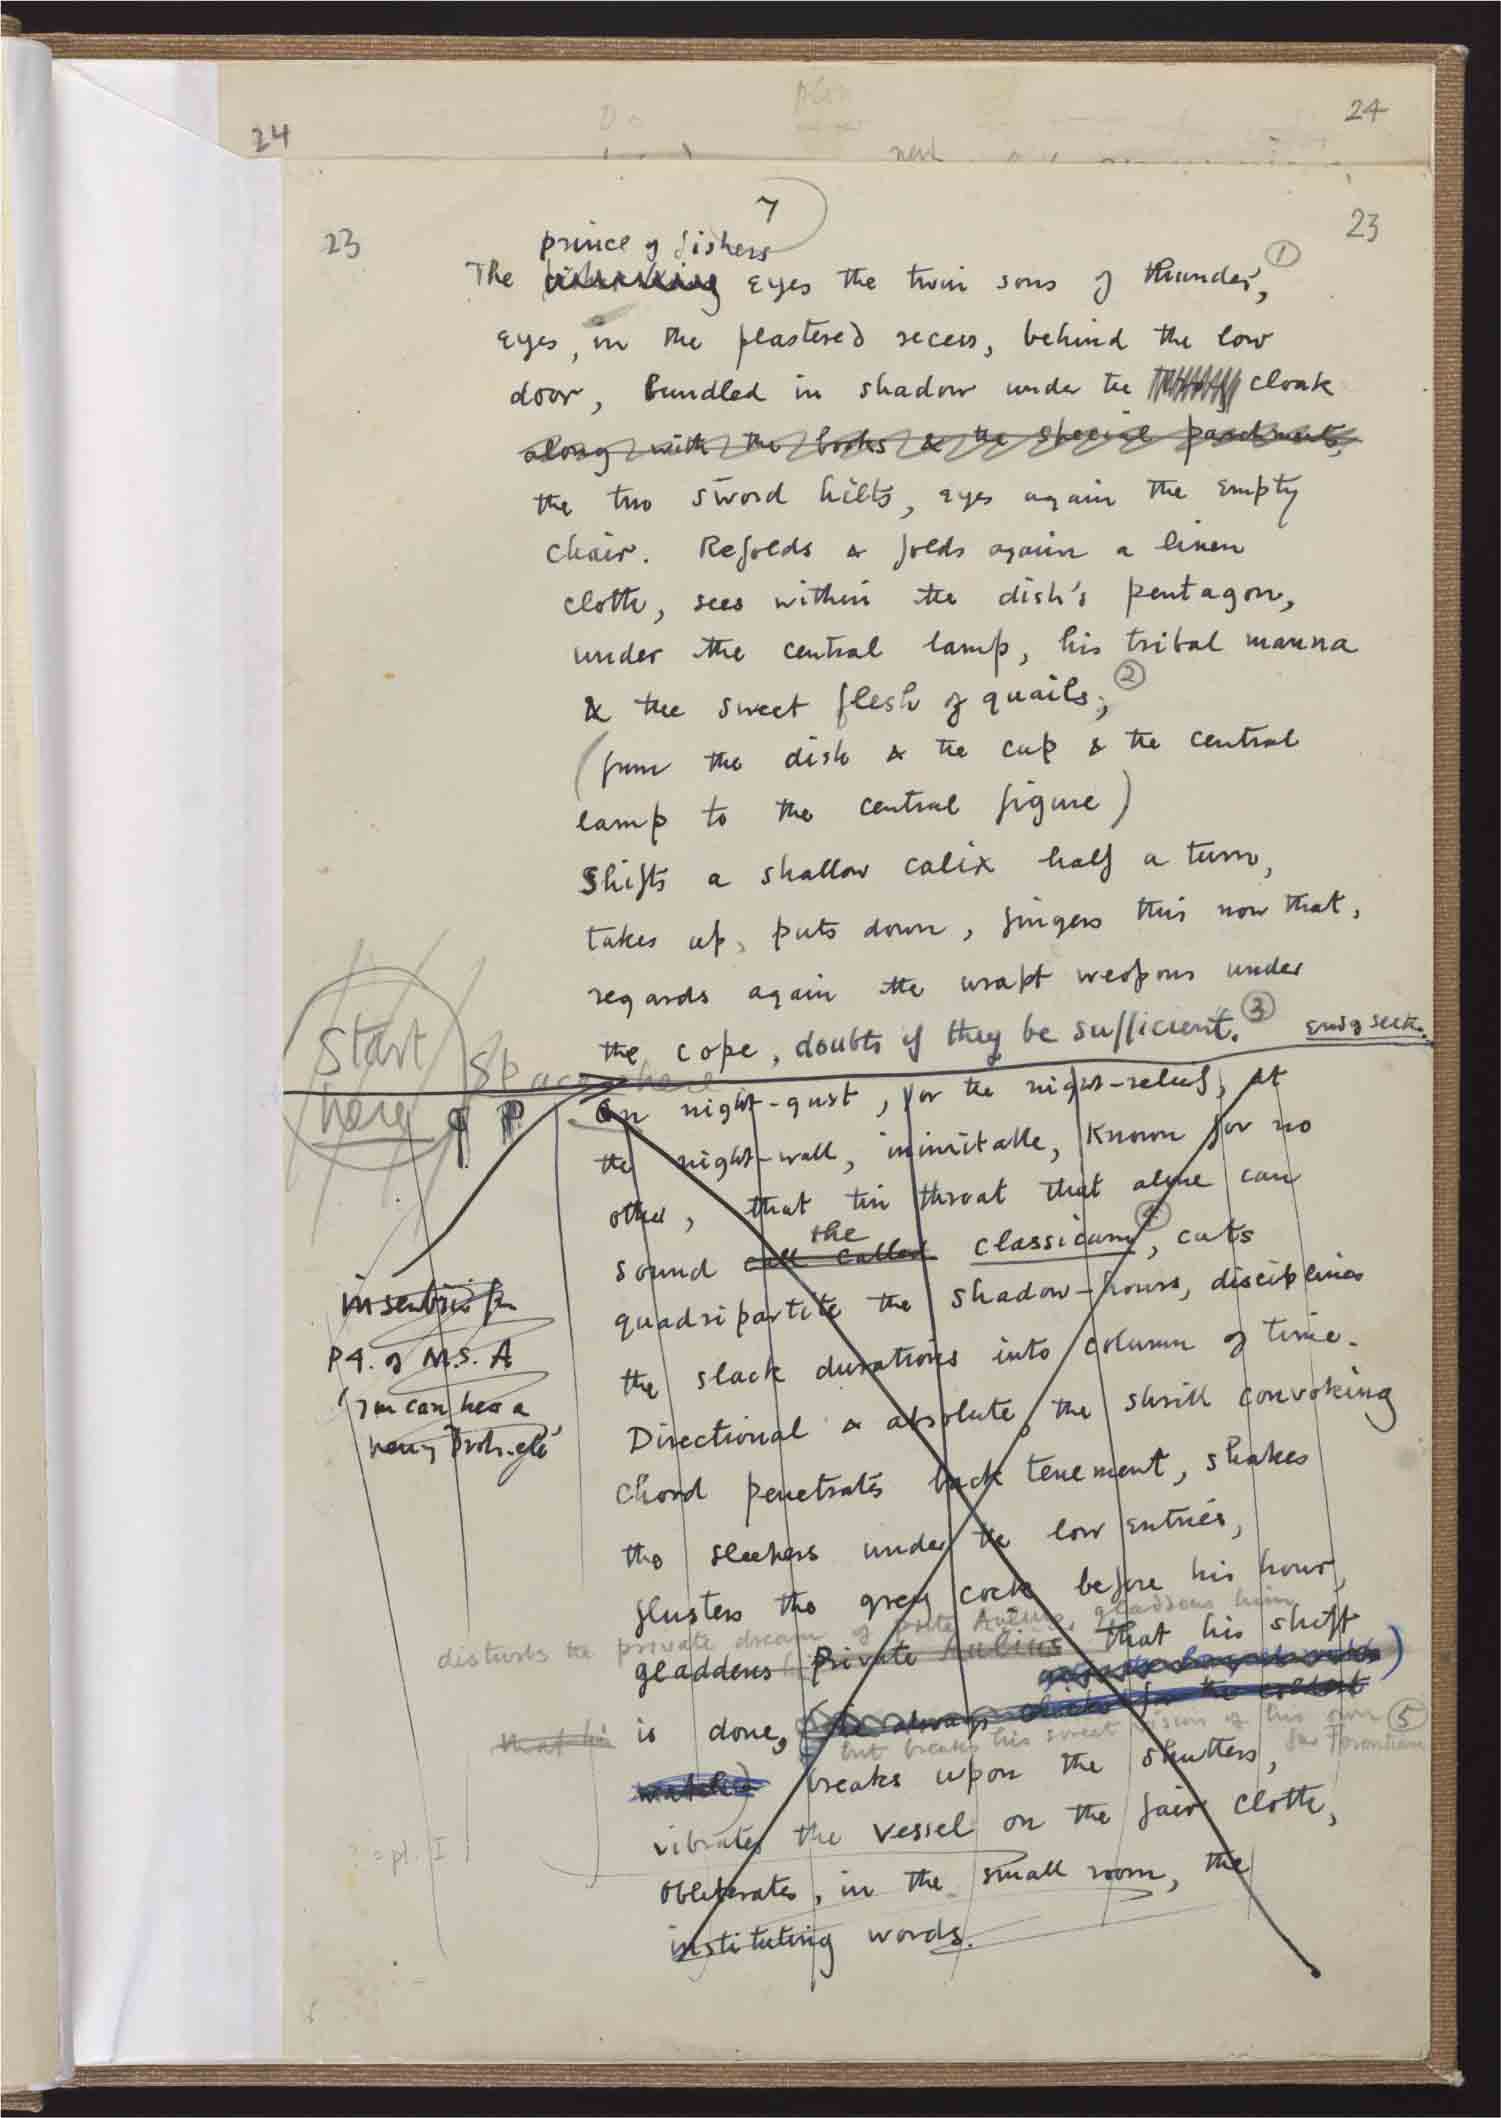 24
24
next
7
23
23
prince of fishers
The eyes the twin sons of thunder, ①
eyes, in the plastered recess, behind the low
door, bundled in shadow under the cloak
along with the books & the special parchments,
the two sword hilts, eyes again the empty
chair. Refolds & folds again a linen
cloth, sees within the dish's pentagon,
under the central lamp, his tribal manna
& the sweet flesh of quails; ②
(from the dish & the cup & the central
lamp to the central figure)
Shifts a shallow calix half a turn,
takes up, puts down, fingers this now that,
regards again the wrapt weapons under
the cope, doubts if they be sufficient. ③ End of sect.
Start
here
Space here
On night-gust, for the night-relief, at
the night-wall, inimitable, known for no
other, that tin throat that alone can
the
sound call called classicum ④, cuts
quadripartite the shadow-hours, disciplines
the slack durations into column of time.
insertion for
P4. of M.S. A
Directional & absolute, the shrill convoking
chord penetrates back tenement, shakes
the sleepers under the low entries,
flusters the grey cock before his hour,
disturbs the private dream of gladdens him
gladdens private Aulius that his shift
that his is done, (he always for the coldest
but breaks his sweet vision of his own ⑤
watches) breaks upon the shutters,
vibrates the vessel on the fair cloth,
? = pt. I
obliterates, in the small room, the
instituting words.